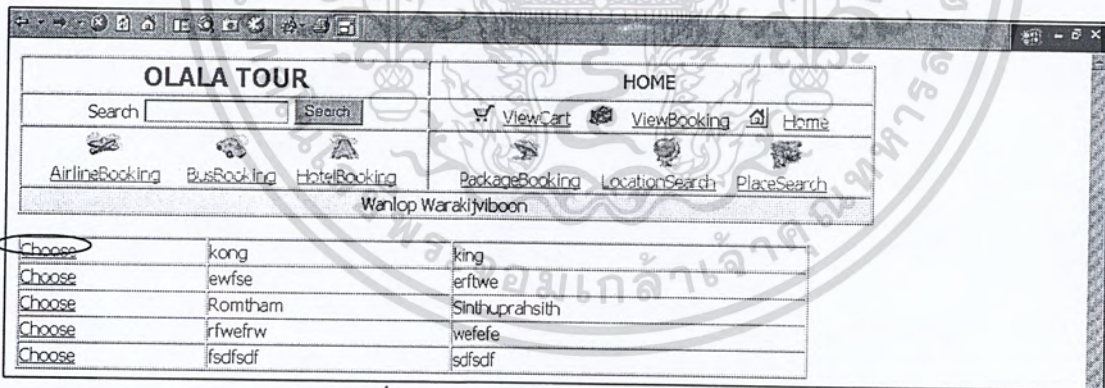 OLALA TOUR HOME
Search Search ViewCart ViewBooking Home
AirlineBooking BusBooking HotelBooking PackageBooking LocationSearch PlaceSearch
Wanlop Warakijviboon
Choose kong king
Choose ewfse erftwe
Choose Romtham Sinthuprahsith
Choose rfwefrw wefefe
Choose fsdfsdf sdfsdf